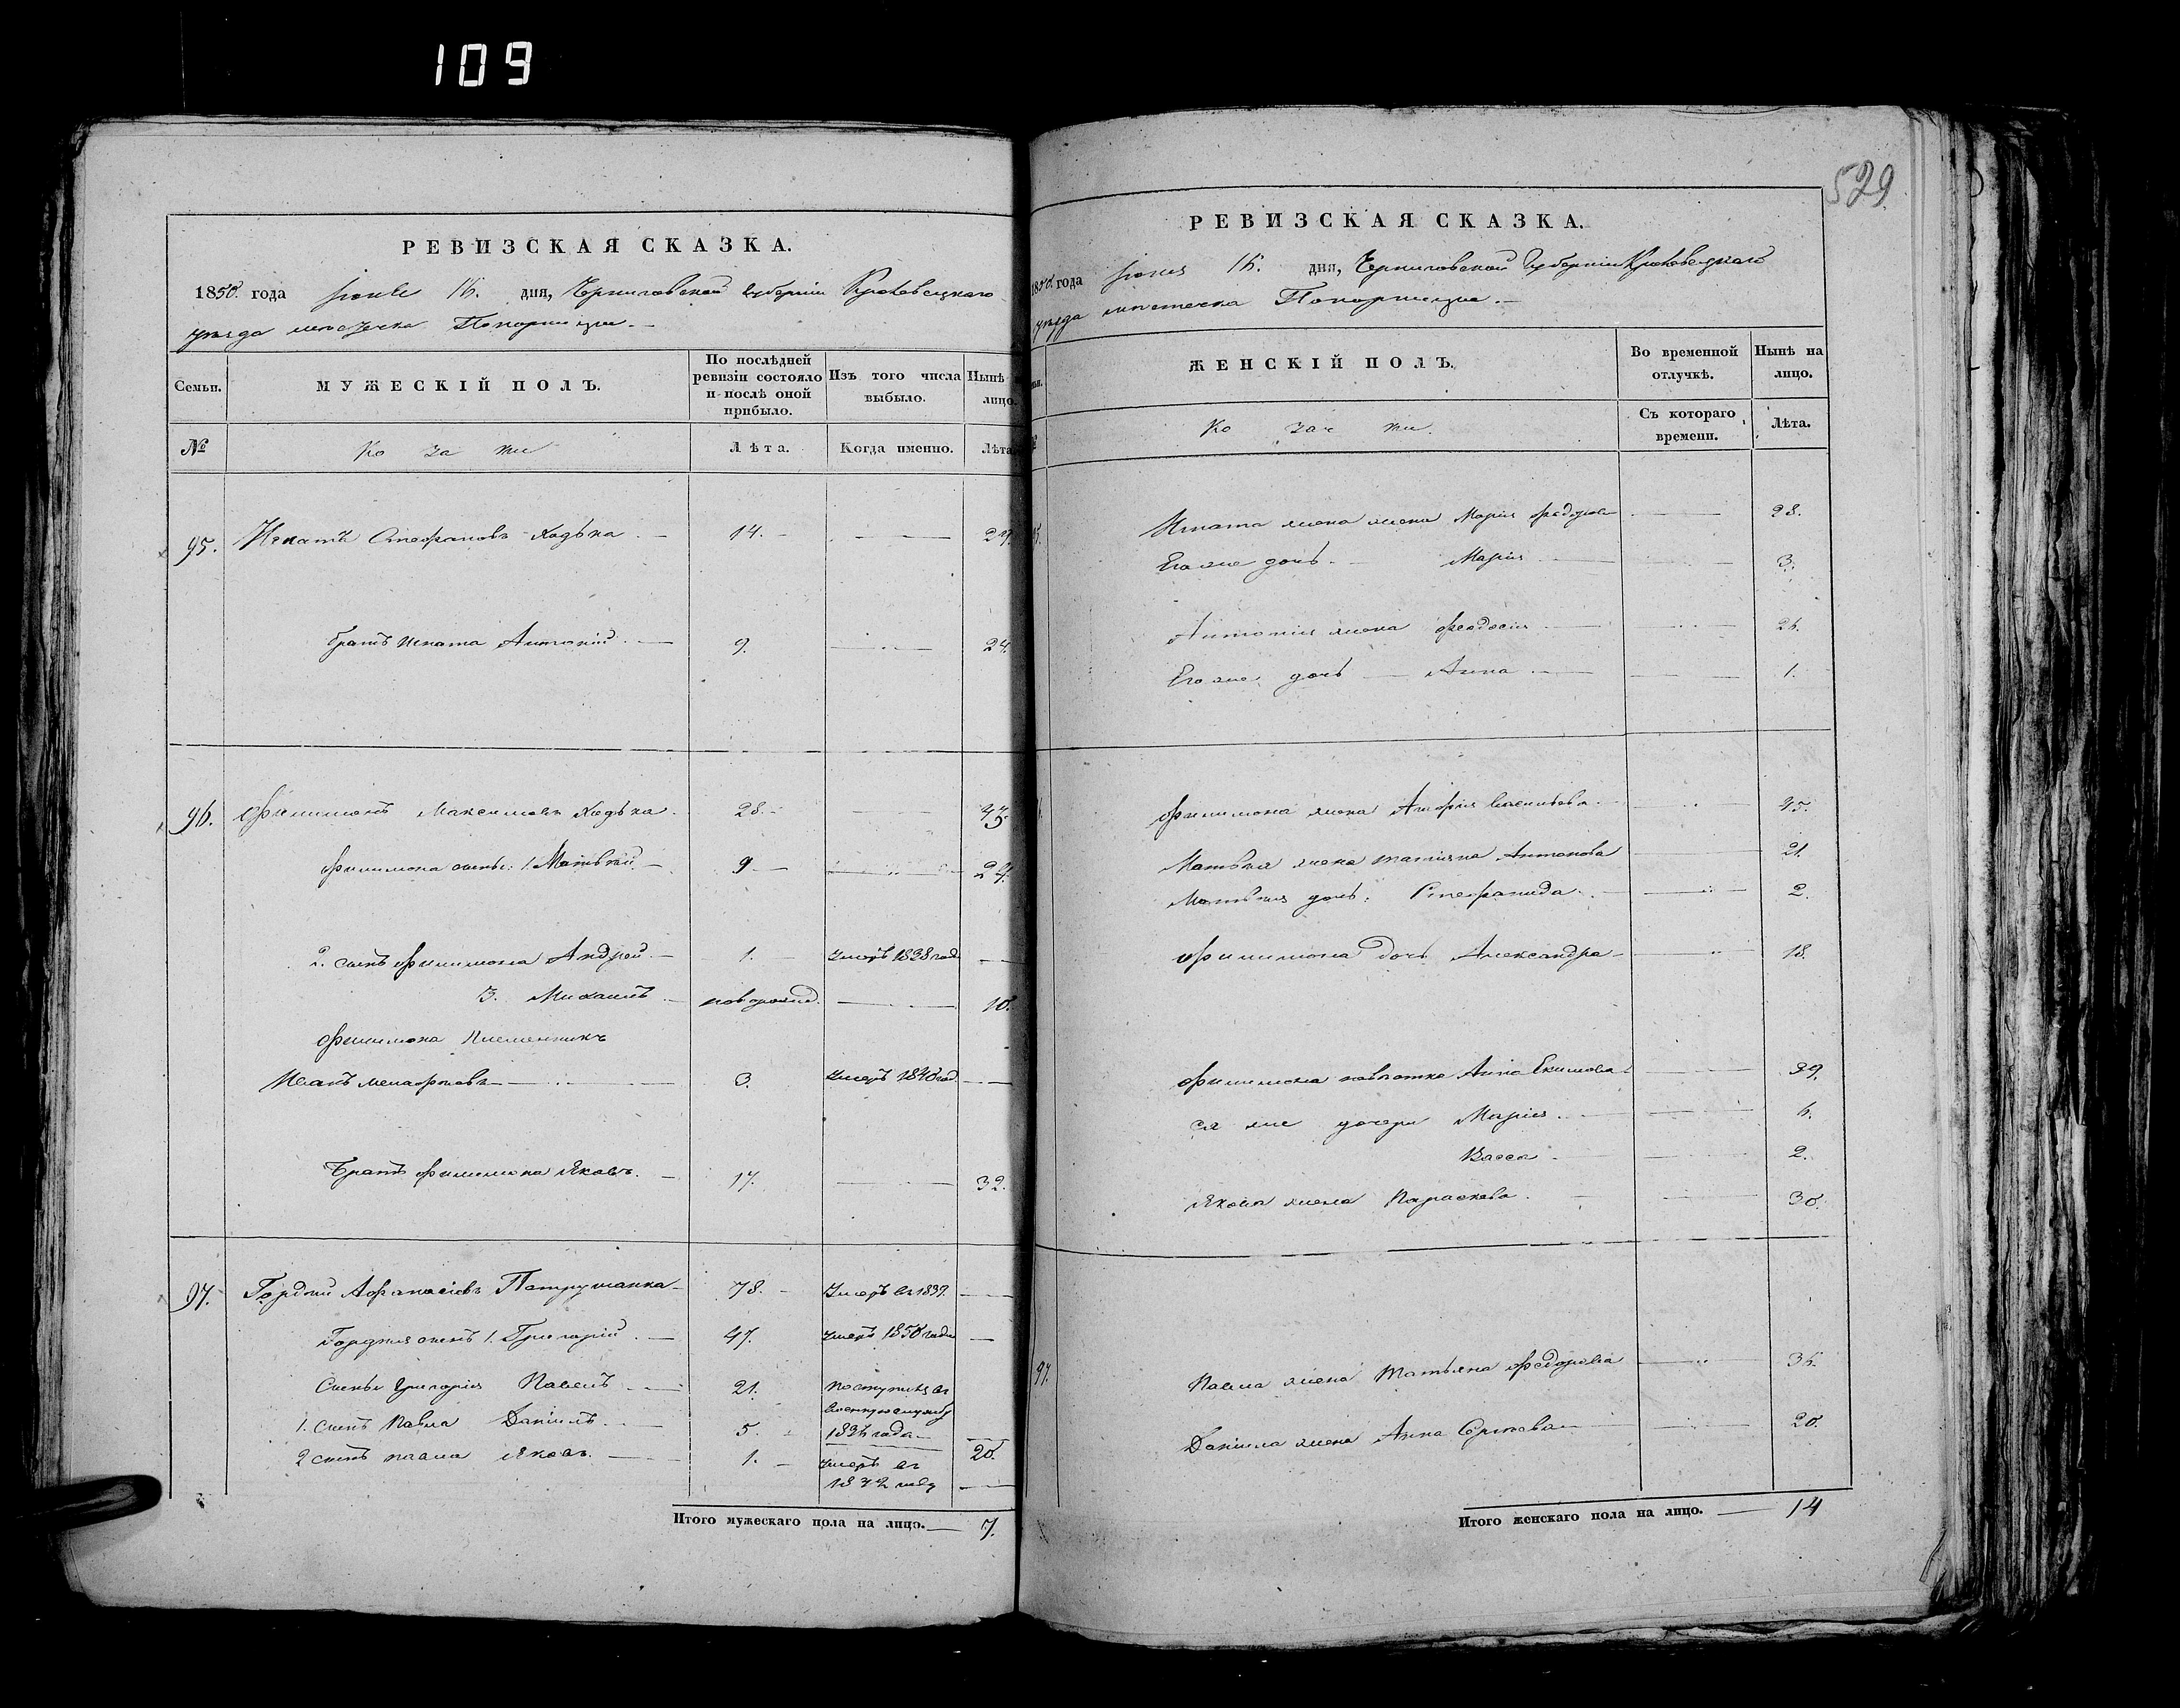 109
РЕВИЗСКАЯ СКАЗКА.
1850. года Іюня 16. дня, Черниговской Губерніи Кролевецкаго
уезда местечка Понорницы.
Семьи.
МУЖЕСКІЙ ПОЛЪ.
По послѣдней ревизіи состояло и послѣ оной прибыло.
Изъ того числа выбыло.
Нынѣ лицо.
№
Козаки
Лѣта.
Когда именно.
Лѣта
95. Игнатъ Стефановъ Ходька 14. 29.
братъ Игната Антоній 9. 24.
96. Филимонъ Максимовъ Ходька 28. 43
Филимона сынъ: 1. Матвей 9 24.
2. сынъ Филимона Андрей 1. умеръ 1838 год
3. Михаилъ новорожд. 10.
Филимона племенникъ
Иванъ 3. умеръ 1840 год
Братъ Филимона Яковъ. 17. 32.
97. Гордей Афанасіевъ 78. умеръ въ 1839.
Гордея сынъ 1. Григорій 47. умеръ 1850 года
Сынъ Григорія Павелъ 21. поступилъ въ
военную службу
1. сынъ Павла Даніилъ 5. 1836 года 20.
2 сынъ Павла Яковъ. 1. умеръ въ
Итого мужескаго пола на лицо. 7.
529
РЕВИЗСКАЯ СКАЗКА.
1850. года Іюня 16. дня, Черниговской Губерніи Кролевецкаго
уезда местечка Понорницы.
ЖЕНСКІЙ ПОЛЪ.
Во временной отлучкѣ.
Нынѣ на лицо.
Козачки.
Съ котораго времени.
Лѣта.
Игната жена Марія Федорова 28.
Его же дочь. Марія 3.
Антонія жена Феодосія 26.
Его же дочь Анна 1.
Филимона жена Васильева 45.
Матвея жена Татіяна Антонова 21.
Матвея дочь: Стефанида 2.
Филимона дочь Александра 18.
Филимона невѣстка Анна Екимова 39.
ея же дочери Марія 6.
Васса 2.
Якова жена Параскева 30.
97. Павла жена Татьяна Федорова 36.
Даніила жена Анна Сергѣева 20.
Итого женскаго пола на лицо. 14